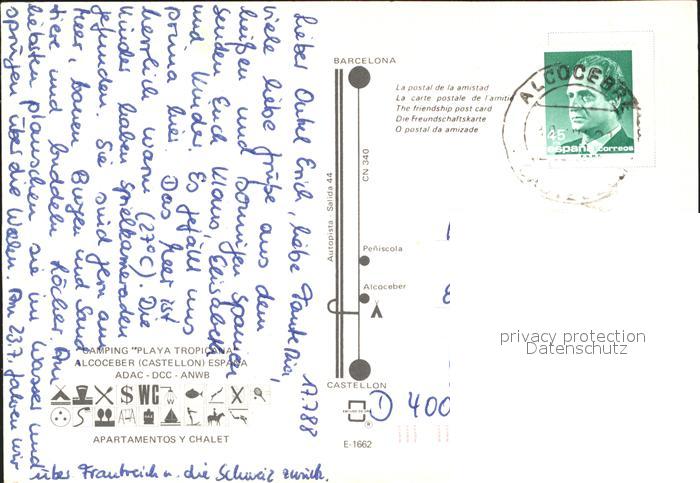 17.7.88
Lieber Onkel Erich, liebe Tante Rosi,
viele liebe Grüße aus dem
heißen und sonnigen Spanien
senden Euch Klaus, Elisabeth
und Kinder. Es gefällt uns
prima hier. Das Meer ist
herrlich warm (27°C). Die
Kinder haben Spielkameraden
gefunden. Sie sind gern am
Meer, bauen Burgen und Sand-
tiere und buddeln Löcher. Am
liebsten planschen sie im Wasser und
springen über die Wellen. Am 23.7. fahren wir
über Frankreich u. die Schweiz zurück.
CAMPING "PLAYA TROPICANA"
ALCOCEBER (CASTELLON) ESPAÑA
ADAC - DCC - ANWB
WC
APARTAMENTOS Y CHALET
BARCELONA
CN 340
Autopista - Salida 44
Peñíscola
Alcoceber
CASTELLON
E-1662
La postal de la amistad
La carte postale de l'amitié
The friendship post card
Die Freundschaftskarte
O postal da amizade
ALCOCEBRE
45
españa correos
F.N.M.T.
D 400
privacy protection
Datenschutz